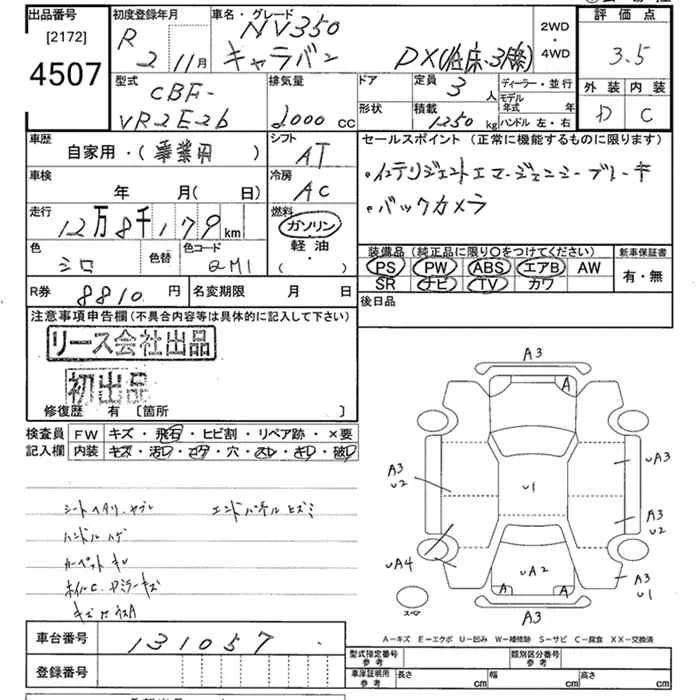 出品番号
[2172]
4507
初度登録年月
R
2 11月
車名・グレード
NV350
キャラバン
DX(低床・3人乗)
2WD
・
4WD
評価点
3.5
外装 内装
D C
型式
CBF-
VR2E26
排気量
2000 cc
ドア
形状
定員 3 人
積載 1250 kg
ディーラー・並行
モデル年式 年
ハンドル 左・右
車歴
自家用・(事業用)
車検
年 月(日)
走行
12万8千179km
シフト
AT
冷房
AC
燃料
ガソリン・
軽油・
( )
色
シロ
色替
色コード
QM1
セールスポイント(正常に機能するものに限ります)
・インテリジェントエマージェンシーブレーキ
・バックカメラ
装備品(純正品に限り〇をつけてください)
PS PW ABS エアB AW
SR ナビ TV カワ
新車保証書
有・無
R券 8810円
名変期限 月 日
後日品
注意事項申告欄(不具合内容等は具体的に記入して下さい)
リース会社出品
初出品
修復歴 有 [箇所 ]
検査員
記入欄
FW キズ・飛石・ヒビ割・リペア跡・×要
内装 キズ・汚レ・コゲ・穴・スレ・キレ・破レ
シートヘタリ、ヤブレ
エンドパネルヒズミ
ハンドルハゲ
カーペットキレ
ホイルC、Fミラーキズ
A3
A
A3
U2
UA3
U1
A3
U2
UA4
UA2
A A
A3
U1
スペア
A3
A-キズ E-エクボ U-凹み W-補修跡 S-サビ C-腐食 XX-交換済
車台番号 131057
登録番号
型式指定番号
参考
類別区分番号
参考
車庫証明用
参考
長さ cm
幅 cm
高さ cm